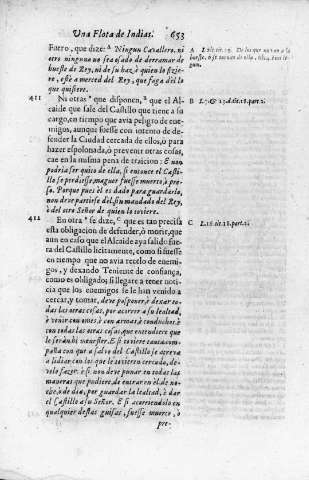 Una Flota de Indias. 653
Fuero, que dize: A Ningun Cavallero, ni
otro ninguno no sea osado de derramar de
hueste de Rey, ni de su haz, è quien lo fizie-
re, està a merced del Rey, que faga dèl lo
que quisiere.
A L 2. tit. 19. De los que no van a la
hueste, ò se tornan de ella, lib. 4. fori le-
gum.
411 Ni otras * que disponen, B que el Al-
caide que sale del Castillo que tiene a su
cargo, en tiempo que avia peligro de ene-
migos, aunque fuesse con intento de de-
fender la Ciudad cercada de ellos, ò para
hazer espolonada, ò prevenir otras cosas,
cae en la misma pena de traicion: E non
podria ser quito de ella, si entonce el Casti-
llo se perdiesse, maguer fuesse muerto, ò pre-
so. Porque pues èl es dado para guardarlo,
non deve partirse del, sin mandado del Rey,
ò del otro Señor de quien lo toviere.
B L. 7. & 17. d. tit. 18. part. 2.
412 En otra * se dize, C que es tan precisa
esta obligacion de defender, ò morir, que
aun en caso que el Alcaide aya salido fue-
ra del Castillo licitamente, como si fuesse
en tiempo que no avia recelo de enemi-
gos, y dexando Teniente de confiança,
como es obligado; si llegare a tener noti-
cia que los enemigos se le han venido a
cercar, y tomar, deve posponer, è dexar to-
das las otras cosas, por acorrer a su lealtad,
è venir con omes, è con armas, è conducho, è
con todas las otras cosas, que entendiere que
le seràn hi menester. E si toviere tanta com-
paña con que a salvo del Castillo se atreva
a lidiar con los que le tovieren cercado, de-
velo fazer: è si non deve punar en todas las
maneras que pudiere, de entrar en èl, de no-
che, ò de dia, por guardar la lealtad, è dar
el Castillo a su Señor. E si acorriendolo en
qualquier destas guisas, fuesse muerto, ò
pre-
C L. 18. tit. 18. part. 2.